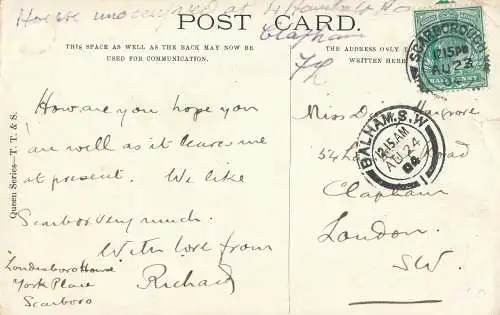 House unoccupied at 4
Clapham
POST CARD.
THIS SPACE AS WELL AS THE BACK MAY NOW BE
USED FOR COMMUNICATION.
THE ADDRESS ONLY
WRITTEN HERE
SCARBOROUGH
12.15PM
AU 23
HALFPENNY
How are you hope you
are well as it leaves me
at present. We like
Scarboro very much.
With love from
Richard
Londesboro House
York Place
Scarboro
Queen Series—T. T. & S.
Miss D.
54 Road
Clapham
London.
SW.
BALHAM.S.W
12.15 AM
AU 24
04